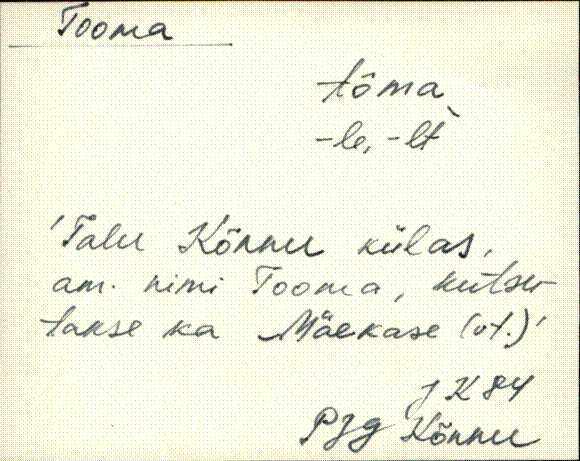 Tooma
tôma
-le, -lt̀
'Talu Kõnnu külas,
am. nimi Tooma, kutsu-
takse ka Mäekase (vt.)'
J K 84
PJg Kõnnu